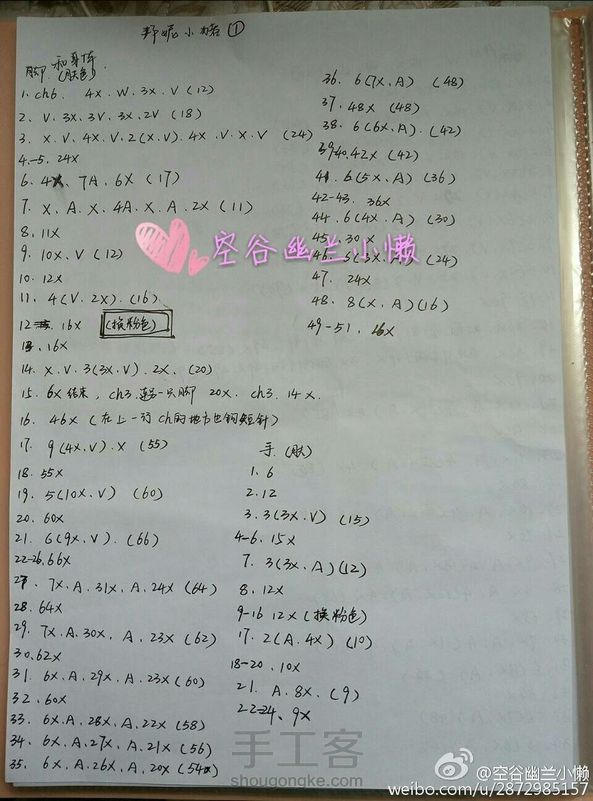 野妮小猪①
脚和身体(肤色)
1. ch6. 4X.W.3X.V (12)
2. V.3X.3V.3X.2V (18)
3. X.V.4X.V.2(X.V).4X.V.X.V (24)
4.-5. 24X
6. 4X、7A、6X (17)
7. X、A、X、4A、X、A、2X (11)
8. 11X
9. 10X、V (12)
10. 12X
11. 4(V、2X). (16)
12. 16X (换粉色)
13. 16X
14. X.V.3(3X.V).2X. (20)
15. 6X结束, ch3.连另一只脚 20X. ch3. 14X.
16. 46X (在上一行ch的地方也钩短针)
17. 9(4X.V).X (55)
18. 55X
19. 5(10X.V) (60)
20. 60X
21. 6(9X.V). (66)
22-26. 66X
27. 7X.A.31X.A.24X (64)
28. 64X
29. 7X.A.30X、A、23X (62)
30. 62X
31. 6X.A.29X.A.23X (60)
32. 60X
33. 6X.A.28X.A.22X (58)
34. 6X.A.27X.A.21X (56)
35. 6X.A.26X.A.20X (54X)
36. 6(7X.A) (48)
37. 48X (48)
38. 6(6X.A). (42)
39.40. 42X (42)
41. 6(5X、A) (36)
42-43. 36X
44. 6(4X、A) (30)
45. 30X
46. 6(3X.A) (24)
47. 24X
48. 8(X、A)(16)
49-51. 16X
手.(肤)
1. 6
2. 12
3. 3(3X、V) (15)
4-6. 15X
7. 3(3X、A)(12)
8. 12X
9-16 12X (换粉色)
17. 2(A.4X) (10)
18-20. 10X
21. A.8X. (9)
22-24、9X
空谷幽兰小懒
手工客
shougongke.com
@空谷幽兰小懒
weibo.com/u/2872985157